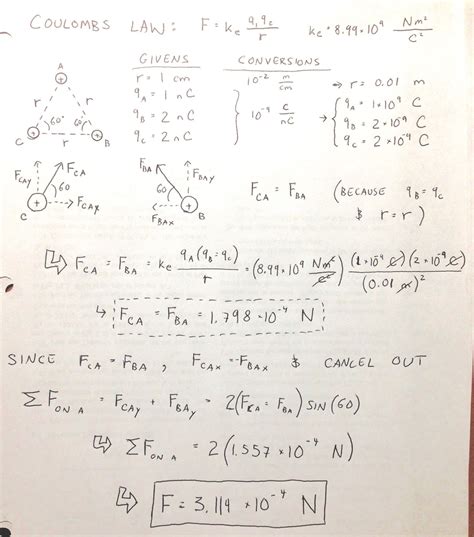 COULOMBS LAW: F = ke q₁q₂/r   ke = 8.99×10⁹ Nm²/C²
GIVENS
r = 1 cm
qA = 1 nC
qB = 2 nC
qC = 2 nC
CONVERSIONS
10⁻² m/cm
10⁻⁹ C/nC
→ r = 0.01 m
qA = 1×10⁹ C
qB = 2×10⁻⁹ C
qC = 2×10⁻⁹ C
A
r r
60° 60°
C r B
FCAy FCA
60
FCAx
C
FBA FBAy
60
FBAx B
FCA = FBA (BECAUSE qB = qC
& r = r)
FCA = FBA = ke qA(qB = qC)/r = (8.99×10⁹ Nm²/C²) (1×10⁻⁹ C)(2×10⁻⁹ C)/(0.01 m)²
FCA = FBA = 1.798×10⁻⁴ N
SINCE FCA = FBA, FCAx = -FBAx & CANCEL OUT
ΣFON A = FCAy + FBAy = 2(FCA = FBA) SIN(60)
ΣFON A = 2(1.557×10⁻⁴ N)
F = 3.114×10⁻⁴ N